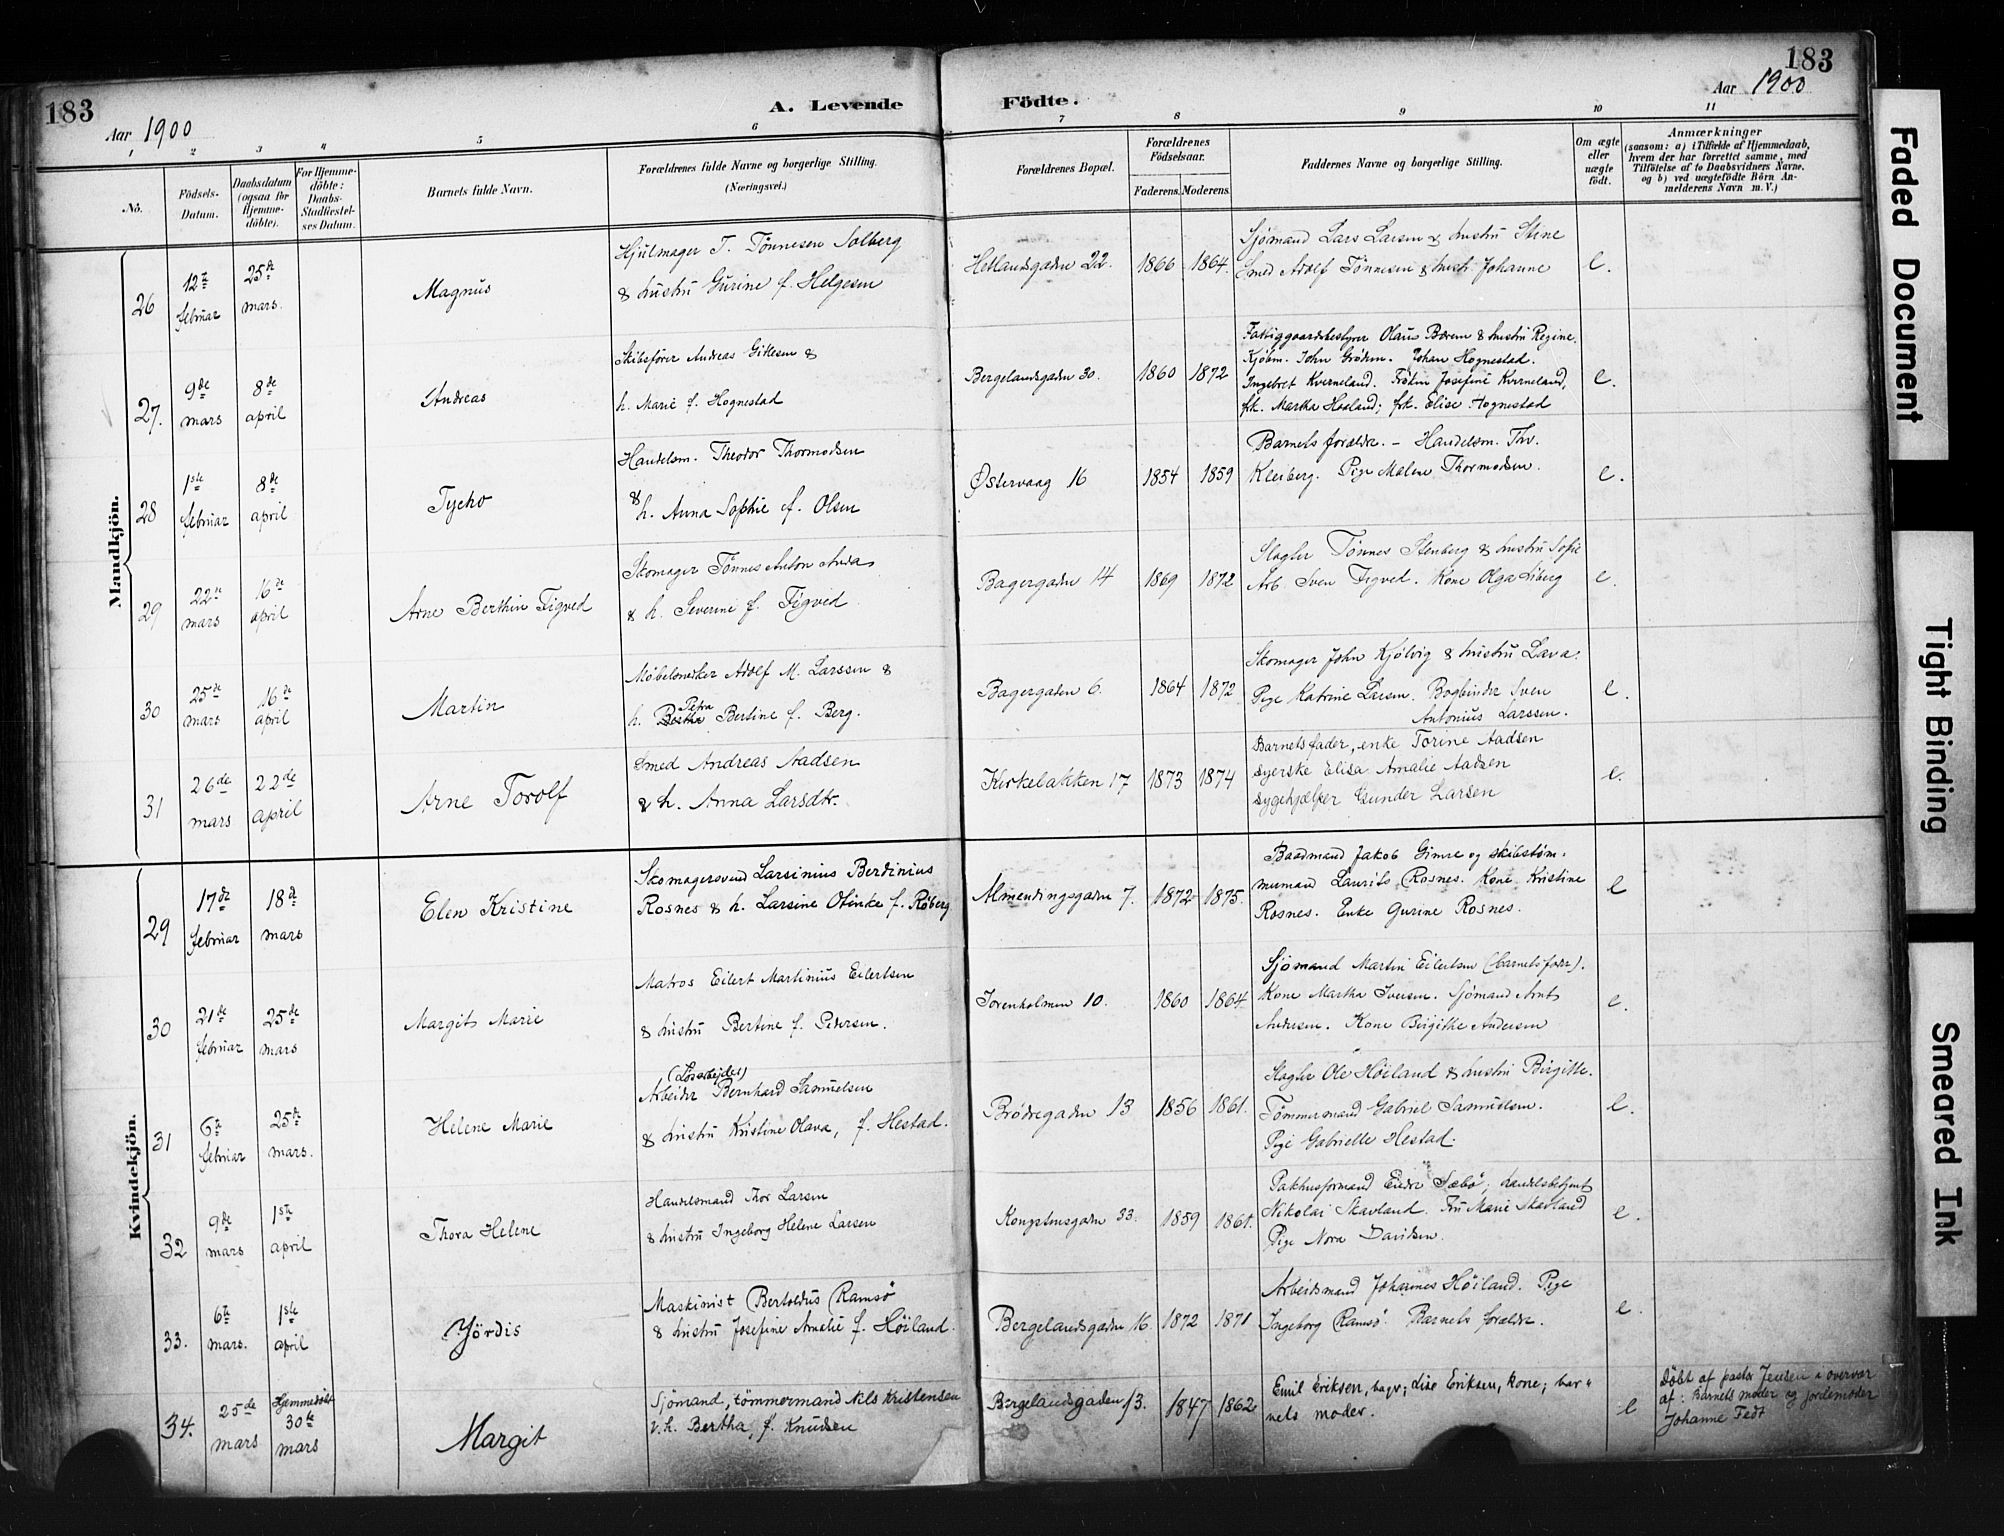 183
183
Aar 1900
A. Levende Födte.
Aar 1900
1 2 3 4 5 6 7 8 9 10 11
No.
Födsels-Datum.
Daabsdatum (ogsaa for Hjemme-döbte).
For Hjemme-döbte: Daabs-Stadfæstel-ses Datum.
Barnets fulde Navn.
Forældrenes fulde Navne og borgerlige Stilling. (Næringsvei.)
Forældrenes Bopæl.
Forældrenes Födselsaar.
Faderens. Moderens.
Faddernes Navne og borgerlige Stilling.
Om ægte eller uægte födt.
Anmærkninger
(saasom: a) i Tilfælde af Hjemmedaab,
hvem der har forrettet samme, med
Tilföielse af to Daabsvidners Navne.
og b) ved uægtefödte Börn An-
melderens Navn m. V.)
Mandkjön.
26 12te februar 25de mars. Magnus
Hjulmager T. Tönnesen Solberg
& hustru Gurine f. Helgesen
Hetlandsgaden 22. 1866 1864.
Sjömand Lars Larsen & hustru Stine
Smed Adolf Tönnesen & hustr. Johanne
e.
27. 9de mars 8de april Andreas
Skibsförer Andreas Gittesen &
h. Marie f. Hognestad
Bergelandsgaden 30. 1860 1872
Fattiggaardsbestyrer Olaus Bærem & hustru Regine.
Kjöbm. John Grödem. Johan Hognestad.
Ingebret Kverneland. Fröken Josefine Kverneland,
frk. Martha Haaland; frk. Elise Hognestad
e.
28 1ste februar 8de april Tycho
Handelsm. Theodor Thormodsen
& h. Anna Sophie f. Olsen
Østervaag 16 1854 1859
Barnets forældre. – Handelsm. Thv.
Kleiberg. Pige Malene Thormodsen.
e.
29 22de mars 16de april Arne Berthin Figved
Skomager Tönnes Anton Anda
& h. Severine f. Figved
Bagergaden 14 1869 1872
Slagter Tönnes Stenberg & hustru Sofie
Arb. Sven Figved. Kone Olga Liberg
e.
30 25de mars 16de april Martin
Möbelsnekker Adolf M. Larssen &
Petra
h. Bertha Bertine f. Berg.
Bagergaden 6. 1864 1872
Skomager John Kjölvig & hustru Lava.
Pige Katrine Larsen. Bogbinder Sven
Antonius Larssen.
e.
31 26de mars 22de april Arne Torolf
Smed Andreas Aadsen
& h. Anna Larsdtr.
Kirkebakken 17 1873 1874
Barnets fader, enke Torine Aadsen
syerske Elisa Amalie Aadsen
sygehjælper Gunder Larsen
e.
Kvindekjön.
29 17de februar 18de mars Elen Kristine
Skomagersvend Larsinius Berdinius
Rosnes & h. Larsine Olinke f. Röberg
Almendingsgaden 7. 1872 1875.
Baadmand Jakob Gimre og skibstöm-
mermand Laurits Rosnes. Kone Kristine
Rosnes. Enke Gurine Rosnes.
e
30 21de februar 25de mars Margit Marie
Matros Eilert Martinius Eilertsen
& hustru Bertine f. Petersen.
Jorenholmen 10. 1860 1864
Sjömand Martin Eilertsen (barnets fader).
Kone Martha Iversen. Sjömand Arnt
Andersen. Kone Birgitte Andersen
e.
31 6te februar 25de mars. Helene Marie
(Lösarbejder)
Arbeider Bernhard Samuelsen
& hustru Kristine Olava, f. Hestad.
Brödregaden 13 1856 1861.
Slagter Ole Höiland & hustru Birgitte.
Tömmermand Gabriel Samuelsen.
Pige Gabrielle Hestad.
e.
32 9de mars 1ste april Thora Helene
Handelsmand Thor Larsen
& hustru Ingeborg Helene Larsen
Kongstensgaden 33. 1859 1861.
Pakhusformand Endre Sæbö; handelsbetjent
Nikolai Skavland. Fru Marie Skavland
Pige Nora Davidsen.
e.
33. 6te mars. 1ste april Hjördis
Maskinist Bertoldus Ramsö
& hustru Josefine Amalie f. Höiland.
Bergelandsgaden 16. 1872 1871
Arbeidsmand Johannes Höiland. Pige
Ingeborg Ramsö. Barnets forældre.
e.
34. 25de mars Hjemmedöbt 30te mars Margit
Sjömand, tömmermand Nils Kristensen
v. h. Bertha, f. Knudsen
Bergelandsgaden 13. 1847 1862
Emil Eriksen, bager; Lise Eriksen, kone; bar-
nets moder.
e
Döbt af pastor Jensen i overvær
af: Barnets moder og jordemoder
Johanne Fedt
Faded Document
Tight Binding
Smeared Ink